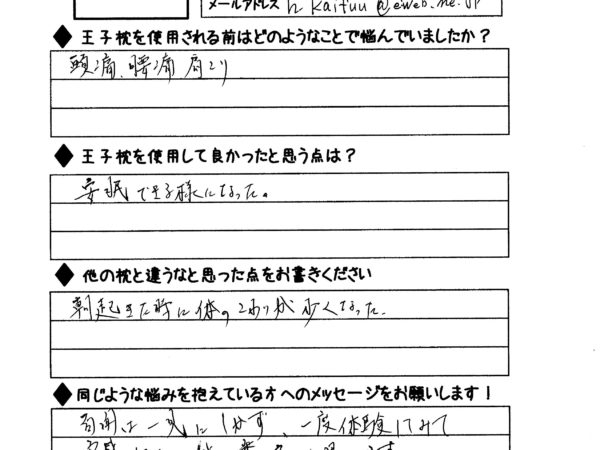 メールアドレス h kaifuu@eweb.ne.jp
◆ 王子枕を使用される前はどのようなことで悩んでいましたか?
頭痛、腰痛 肩こり
◆ 王子枕を使用して良かったと思う点は?
安眠できる様になった。
◆ 他の枕と違うなと思った点をお書きください
朝起きた時に体のこわりが少くなった.
◆ 同じような悩みを抱えている方へのメッセージをお願いします!
は一気にしかず、一度体験してみて